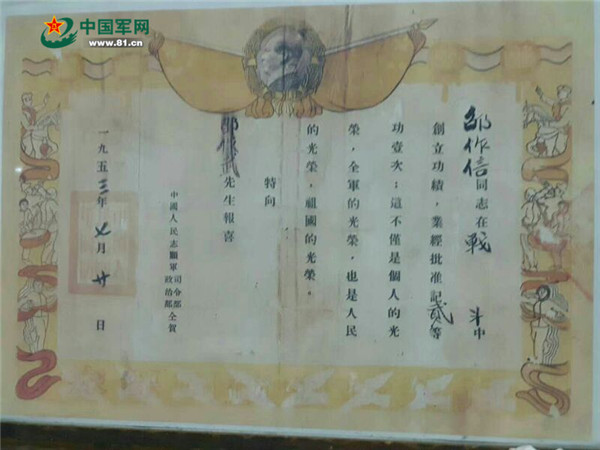 中国军网
www.81.cn
邵作信同志在戰斗中
創立功績，業經批准記貳等
功壹次；這不僅是個人的光
榮，全軍的光榮，也是人民
的光榮，祖國的光榮。
特向
武先生報喜
中國人民志願軍司令部政治部仝賀
一九五三年七月廿日